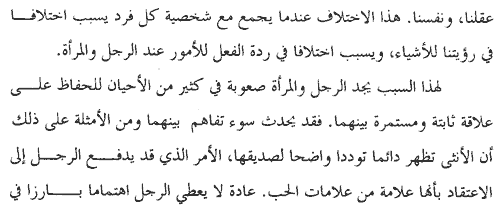 عقلنا، ونفسنا. هذا الاختلاف عندما يجمع مع شخصية كل فرد يسبب اختلافا
في رؤيتنا للأشياء، ويسبب اختلافا في ردة الفعل للأمور عند الرجل والمرأة.
لهذا السبب يجد الرجل والمرأة صعوبة في كثير من الأحيان للحفاظ على
علاقة ثابتة ومستمرة بينهما. فقد يحدث سوء تفاهم بينهما ومن الأمثلة على ذلك
أن الأنثى تظهر دائما توددا واضحا لصديقها، الأمر الذي قد يدفع الرجل إلى
الاعتقاد بأنها علامة من علامات الحب. عادة لا يعطي الرجل اهتماما بارزا في